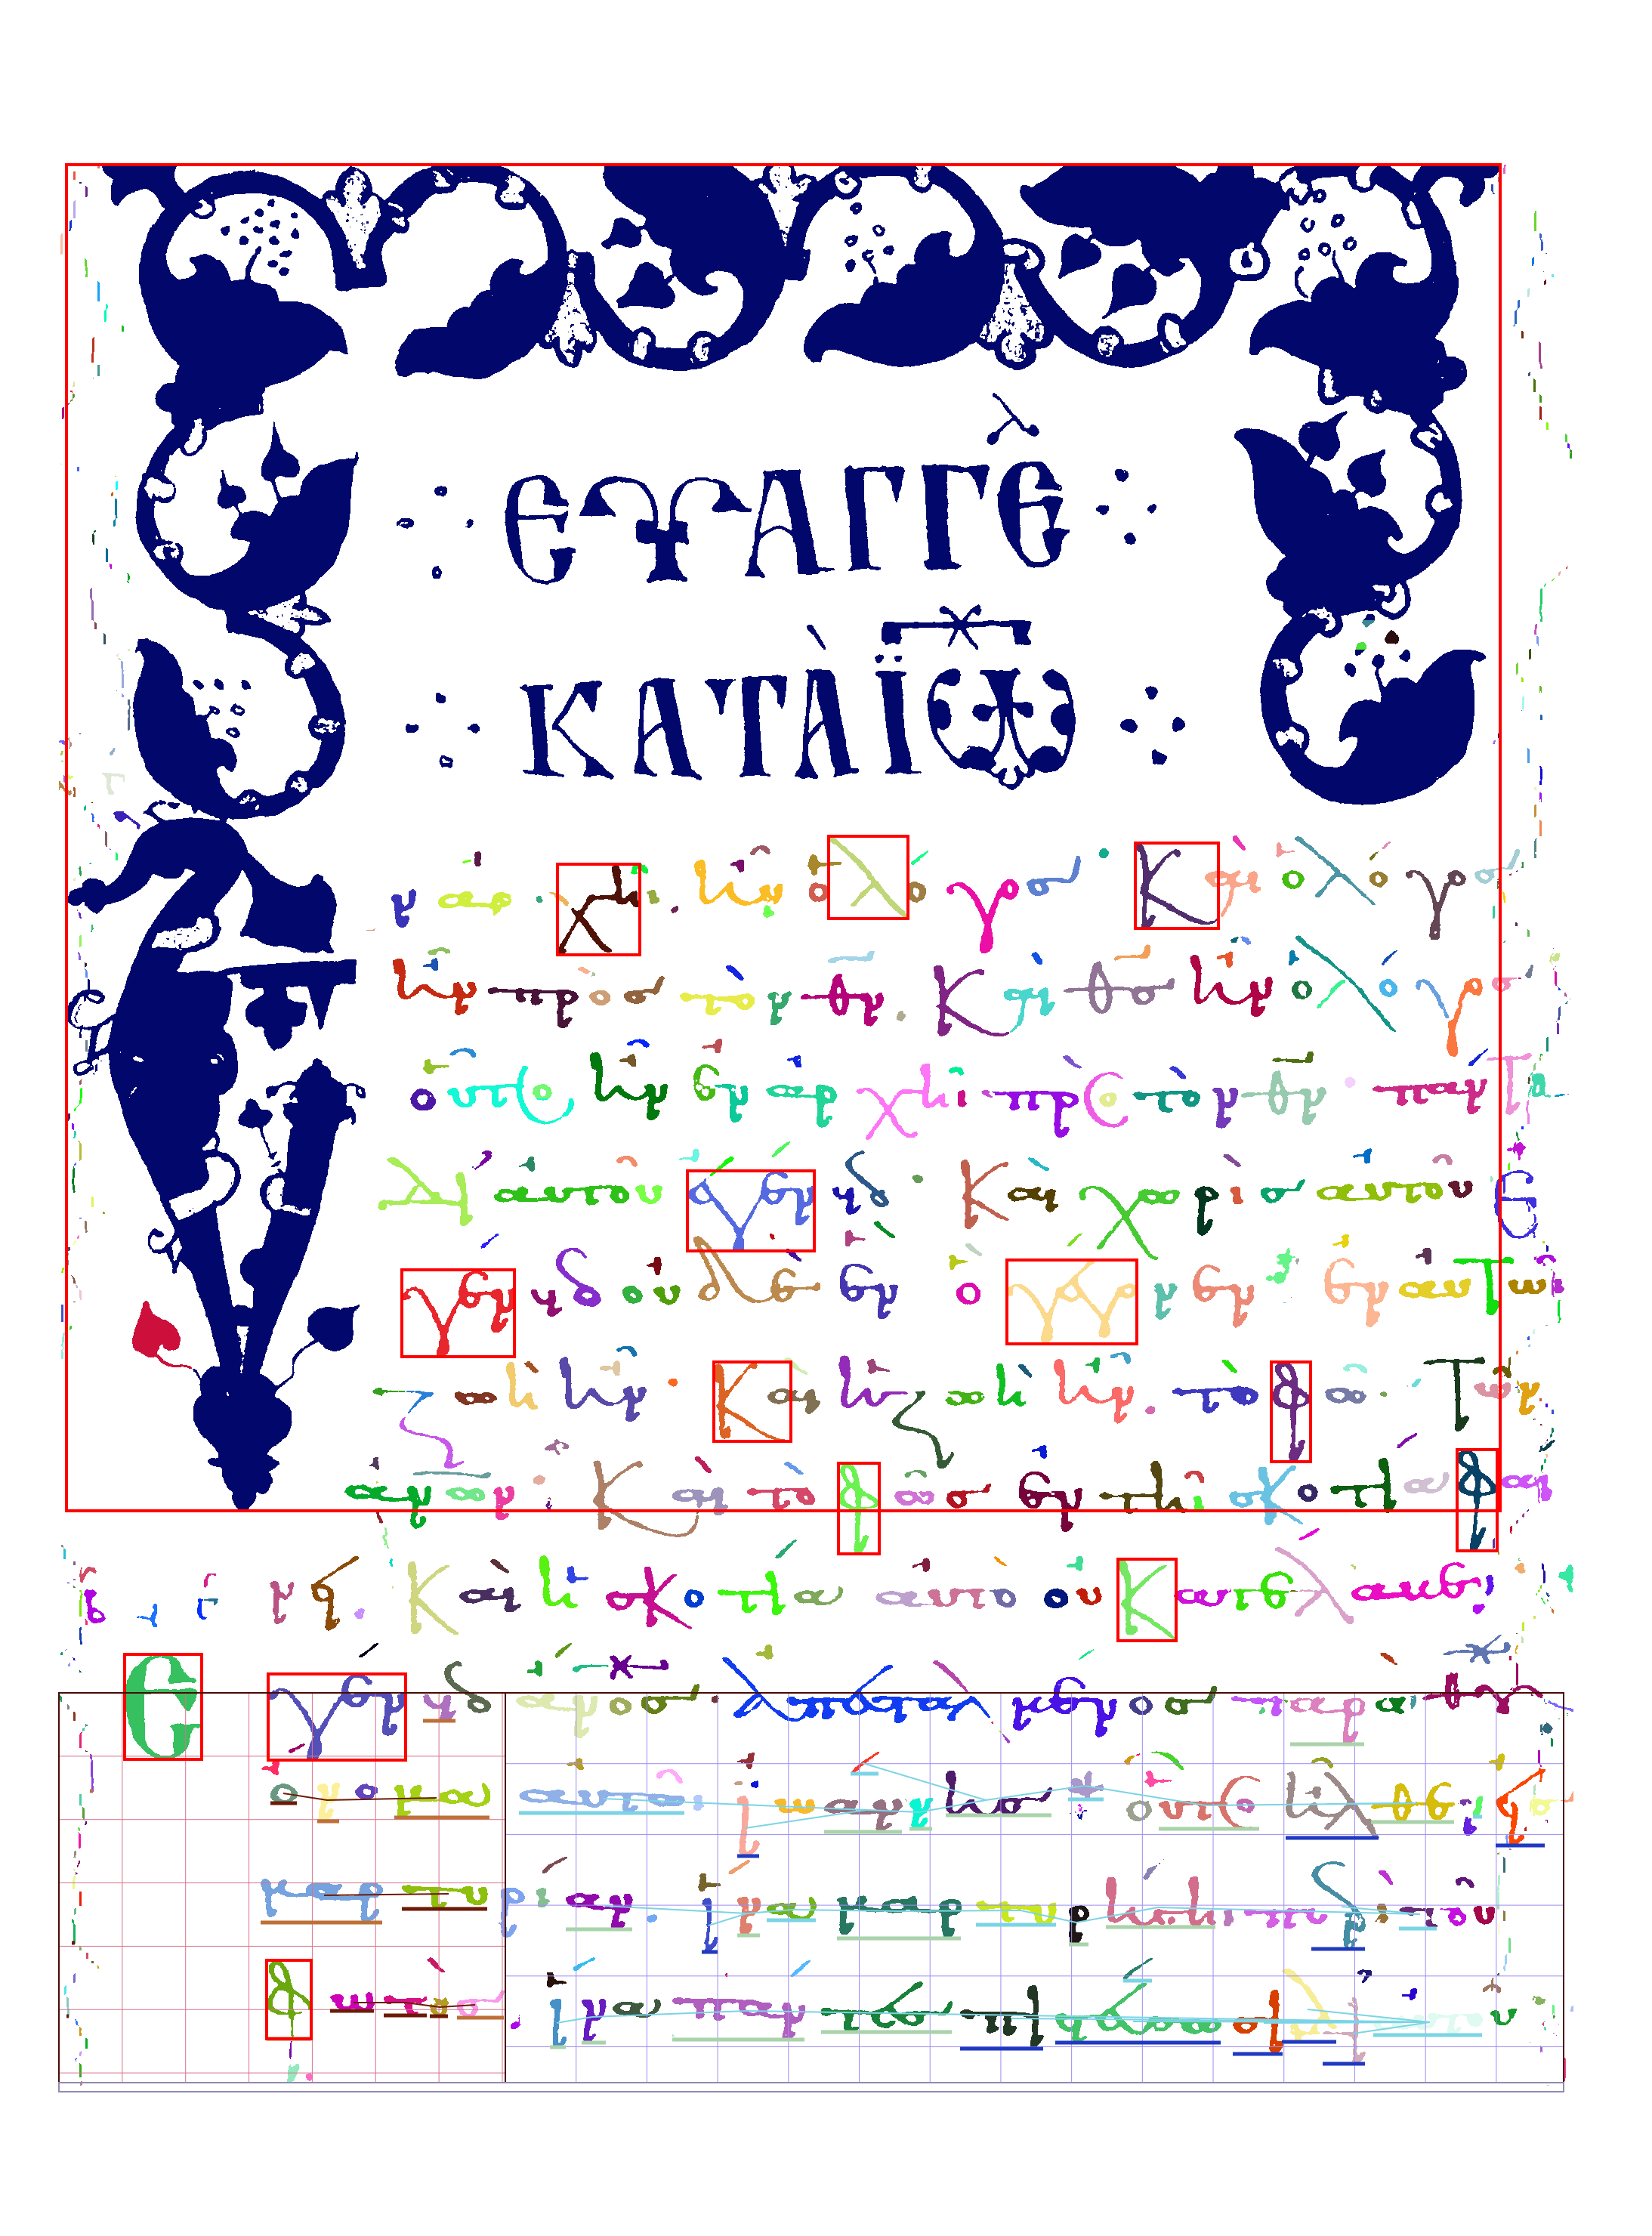 ΕΥΑΓΓΕΛ
ΚΑΤᾺ ΪΩ
ν ἀρχῆ ἦν ὁ λόγος. Καὶ ὁ λόγος
ἦν πρὸς τὸν θν. Καὶ θς ἦν ὁ λόγος
οὗτος ἦν ἐν ἀρχῆ πρὸς τὸν θν. πάντα
δι' αὐτοῦ ἐγένετο. Καὶ χωρὶς αὐτοῦ ἐ
γένετο οὐδὲ ἓν ὃ γέγονεν. ἐν αὐτῶ
ζωὴ ἦν. Καὶ ἡ ζωὴ ἦν τὸ φῶς. τῶν
ανων. Καὶ τὸ φῶς ἐν τῆ σκοτία φαί
νει. Καὶ ἡ σκοτία αὐτὸ οὐ κατέλαβεν.
Ἐγένετο ἄνος ἀπεσταλμένος παρὰ θυ
ὄνομα αὐτῶ ἰωάννης. οὗτος ἦλθεν εἰς
μαρτυρίαν. ἵνα μαρτυρήση περὶ τοῦ
φωτός. ἵνα πάντες